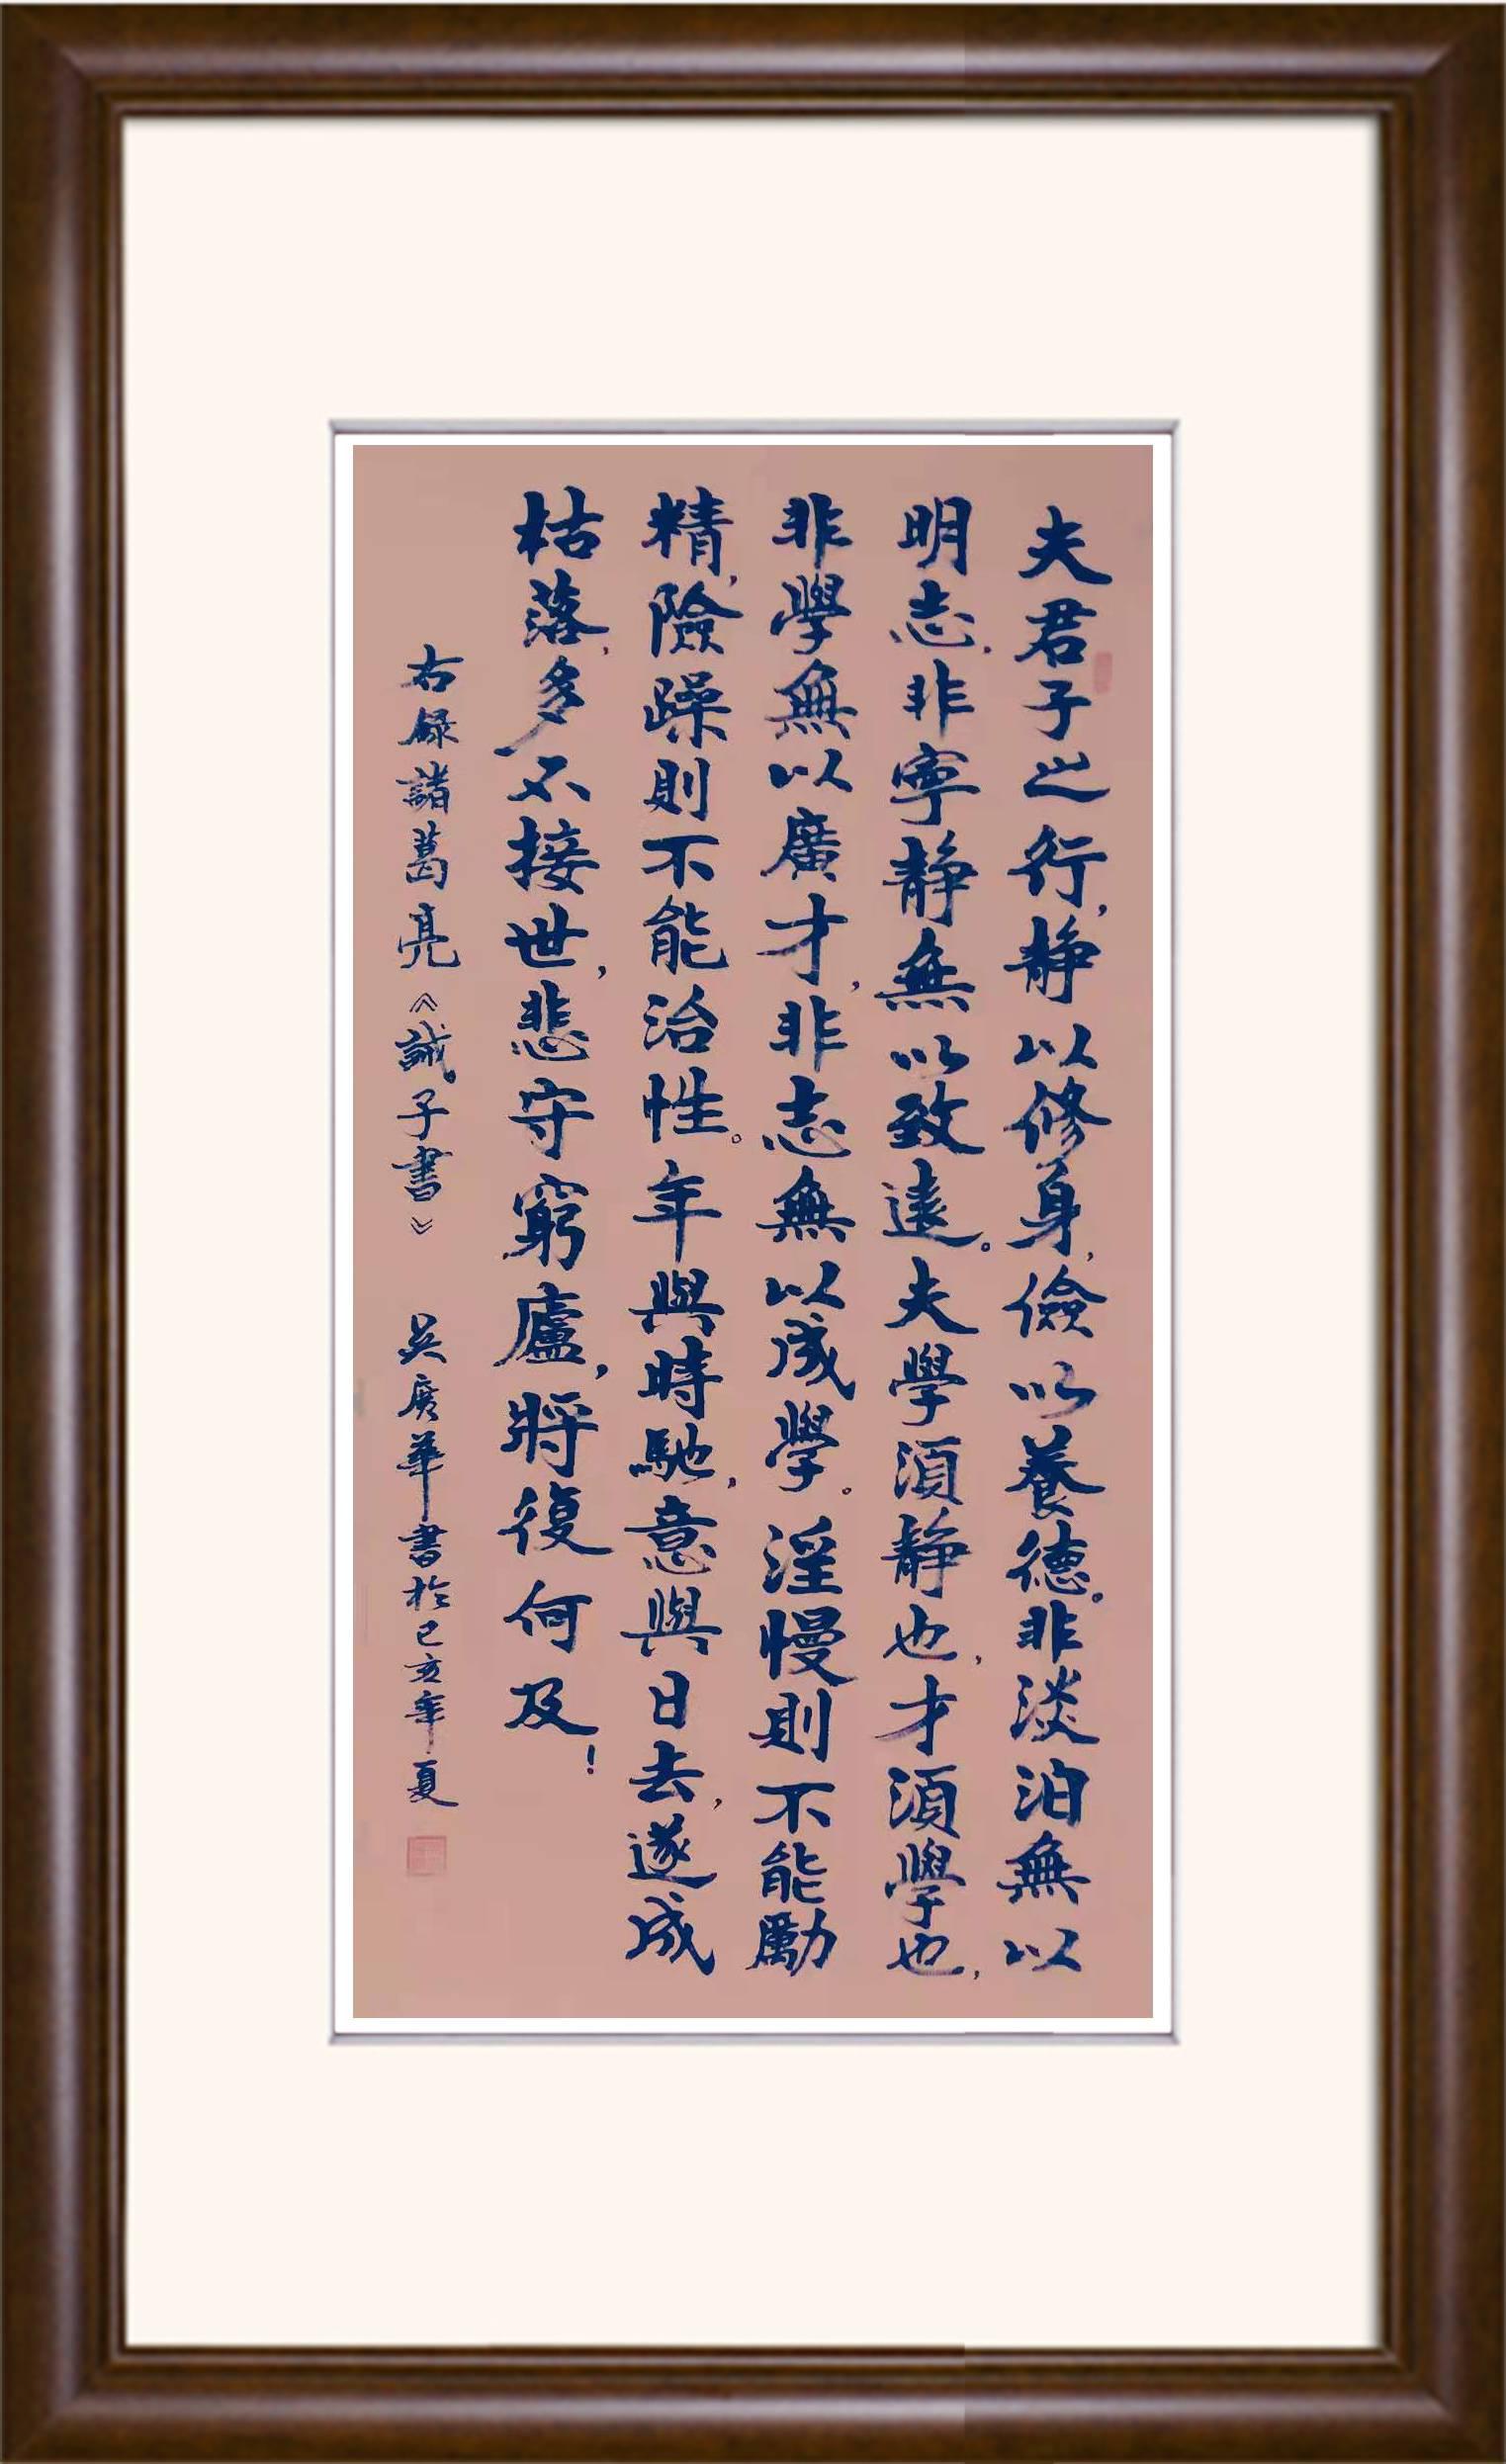 夫君子之行,静以修身,儉以養德。非淡泊無以
明志,非寧静無以致遠。夫學須静也,才須學也,
非學無以廣才,非志無以成學。淫慢則不能勵
精,險躁則不能治性。年與時馳,意與日去,遂成
枯落,多不接世,悲守窮廬,將復何及!
右録諸葛亮《誡子書》 吴广華書於己亥年夏